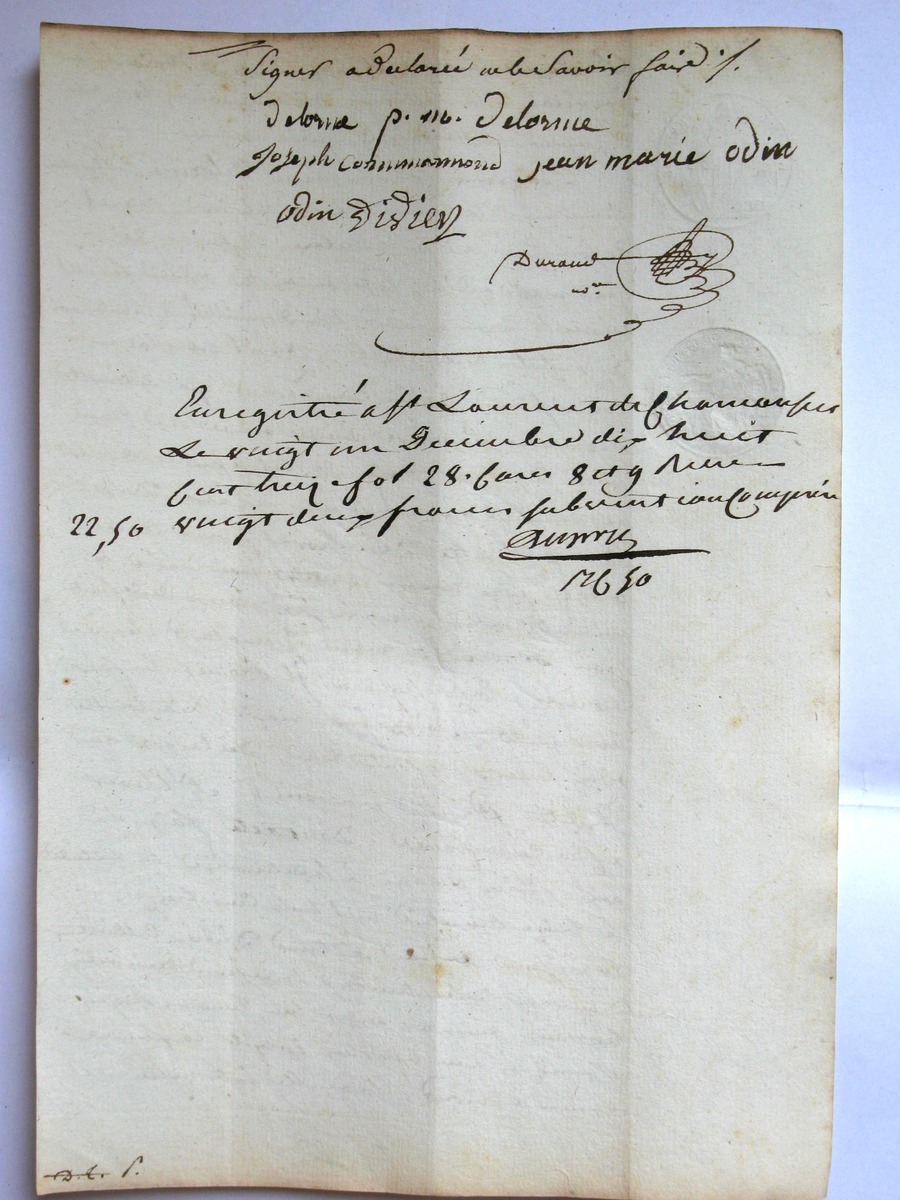 Signer a déclarée ne le Savoir faire ./.
Delorme p. m. Delorme
Joseph Commarmond jean marie odin
odin didier
Durand
nore
Enregistré a St Laurent de Chamousset
Le vingt un Decembre dix huit
Cent treize fol 28. Cases 8 et 9 Recu
22,50 vingt deux francs subvention Comprise